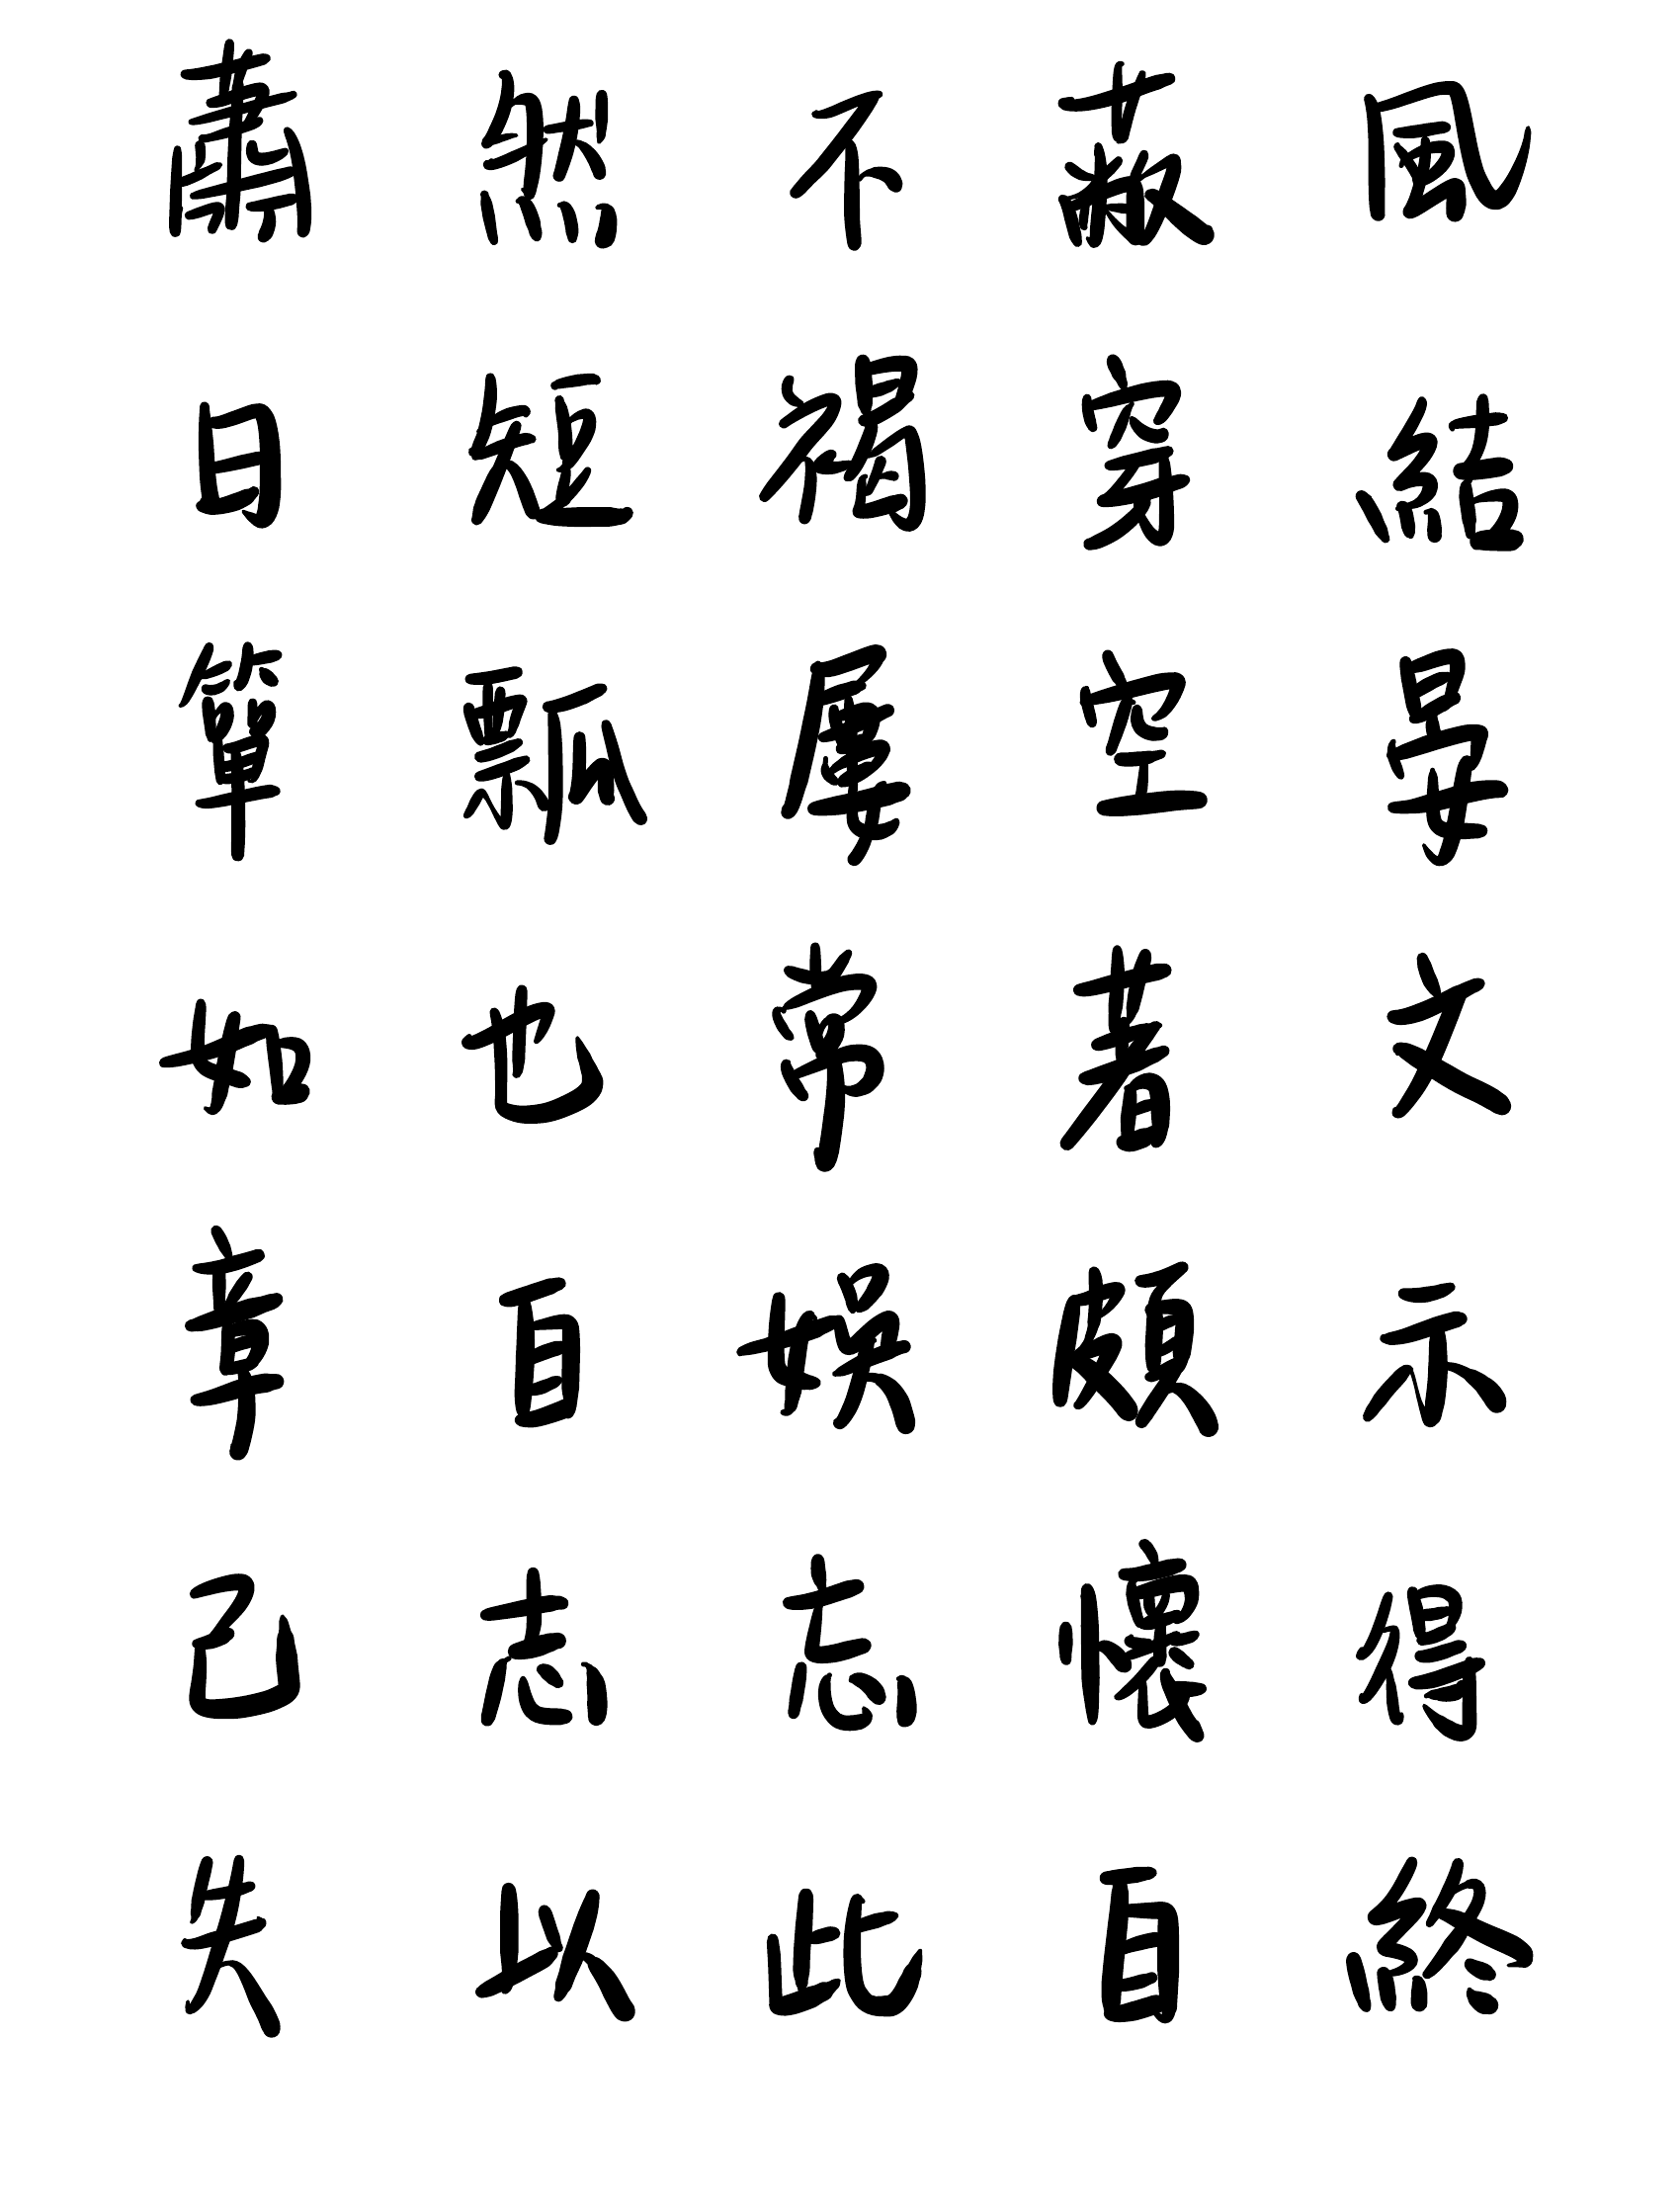 蕭然不蔽風
日短褐穿結
簞瓢屢空晏
如也常著文
章自娛頗示
己志忘懷得
失以此自終